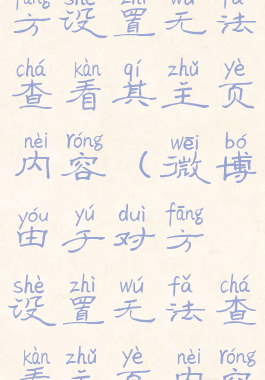 fāng shè zhì wú fǎ
方设置无法
chá kàn qí zhǔ yè
查看其主页
nèi róng wēi bó
内容（微博
yóu yú duì fāng
由于对方
shè zhì wú fǎ chá
设置无法查
kàn zhǔ yè nèi róng
看主页内容